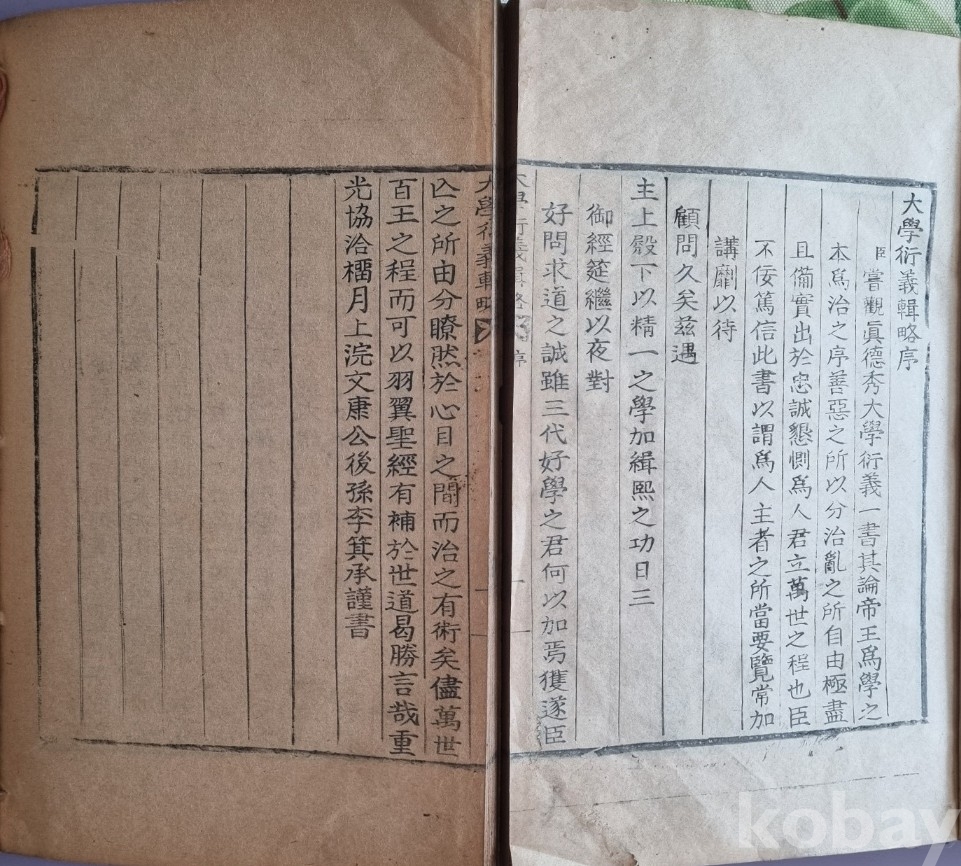 大學衍義輯略序
臣嘗觀眞德秀大學衍義一書其論帝王爲學之
本爲治之序善惡之所以分治亂之所自由極盡
且備實出於忠誠懇惻爲人君立萬世之程也臣
不侫篤信此書以謂爲人主者之所當要覽常加
講劘以待
顧問久矣玆遇
主上殿下以精一之學加緝熙之功日三
御經筵繼以夜對
好問求道之誠雖三代好學之君何以加焉獲遂臣
大學衍義輯略 序 一
大學衍義輯略 一
亾之所由分瞭然於心目之間而治之有術矣儘萬世
百王之程而可以羽翼聖經有補於世道曷勝言哉重
光協洽橊月上浣文康公後孫李箕承謹書
kobay